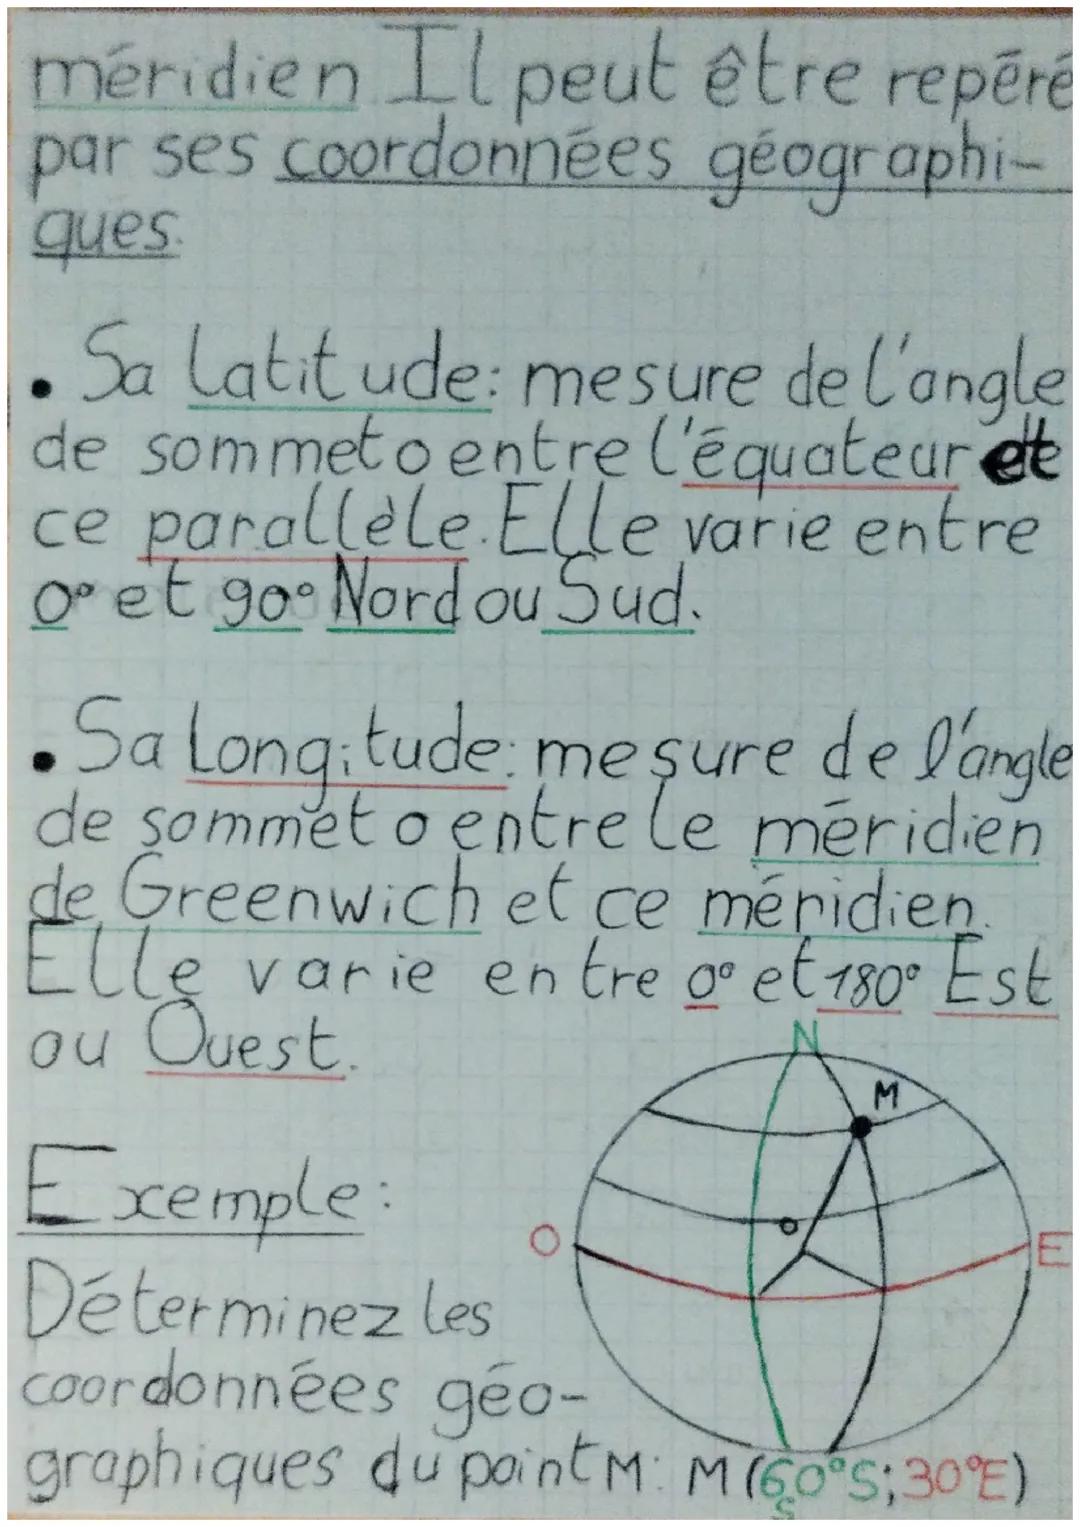 méridien Il peut être repéré
par ses coordonnées géographi-
ques.
• Sa latitude: mesure de l'angle
de sommet o entre l'équateur et
ce parallèle. Elle varie entre
0° et 90° Nord ou Sud.
• Sa Longitude: mesure de l'angle
de sommet o entre le méridien
de Greenwich et ce méridien.
Elle varie entre 0° et 180° Est
ou Ouest.
N
M
Exemple:
O
o
E
Déterminez les
coordonnées géo-
graphiques du point M: M (60°S; 30°E)
S